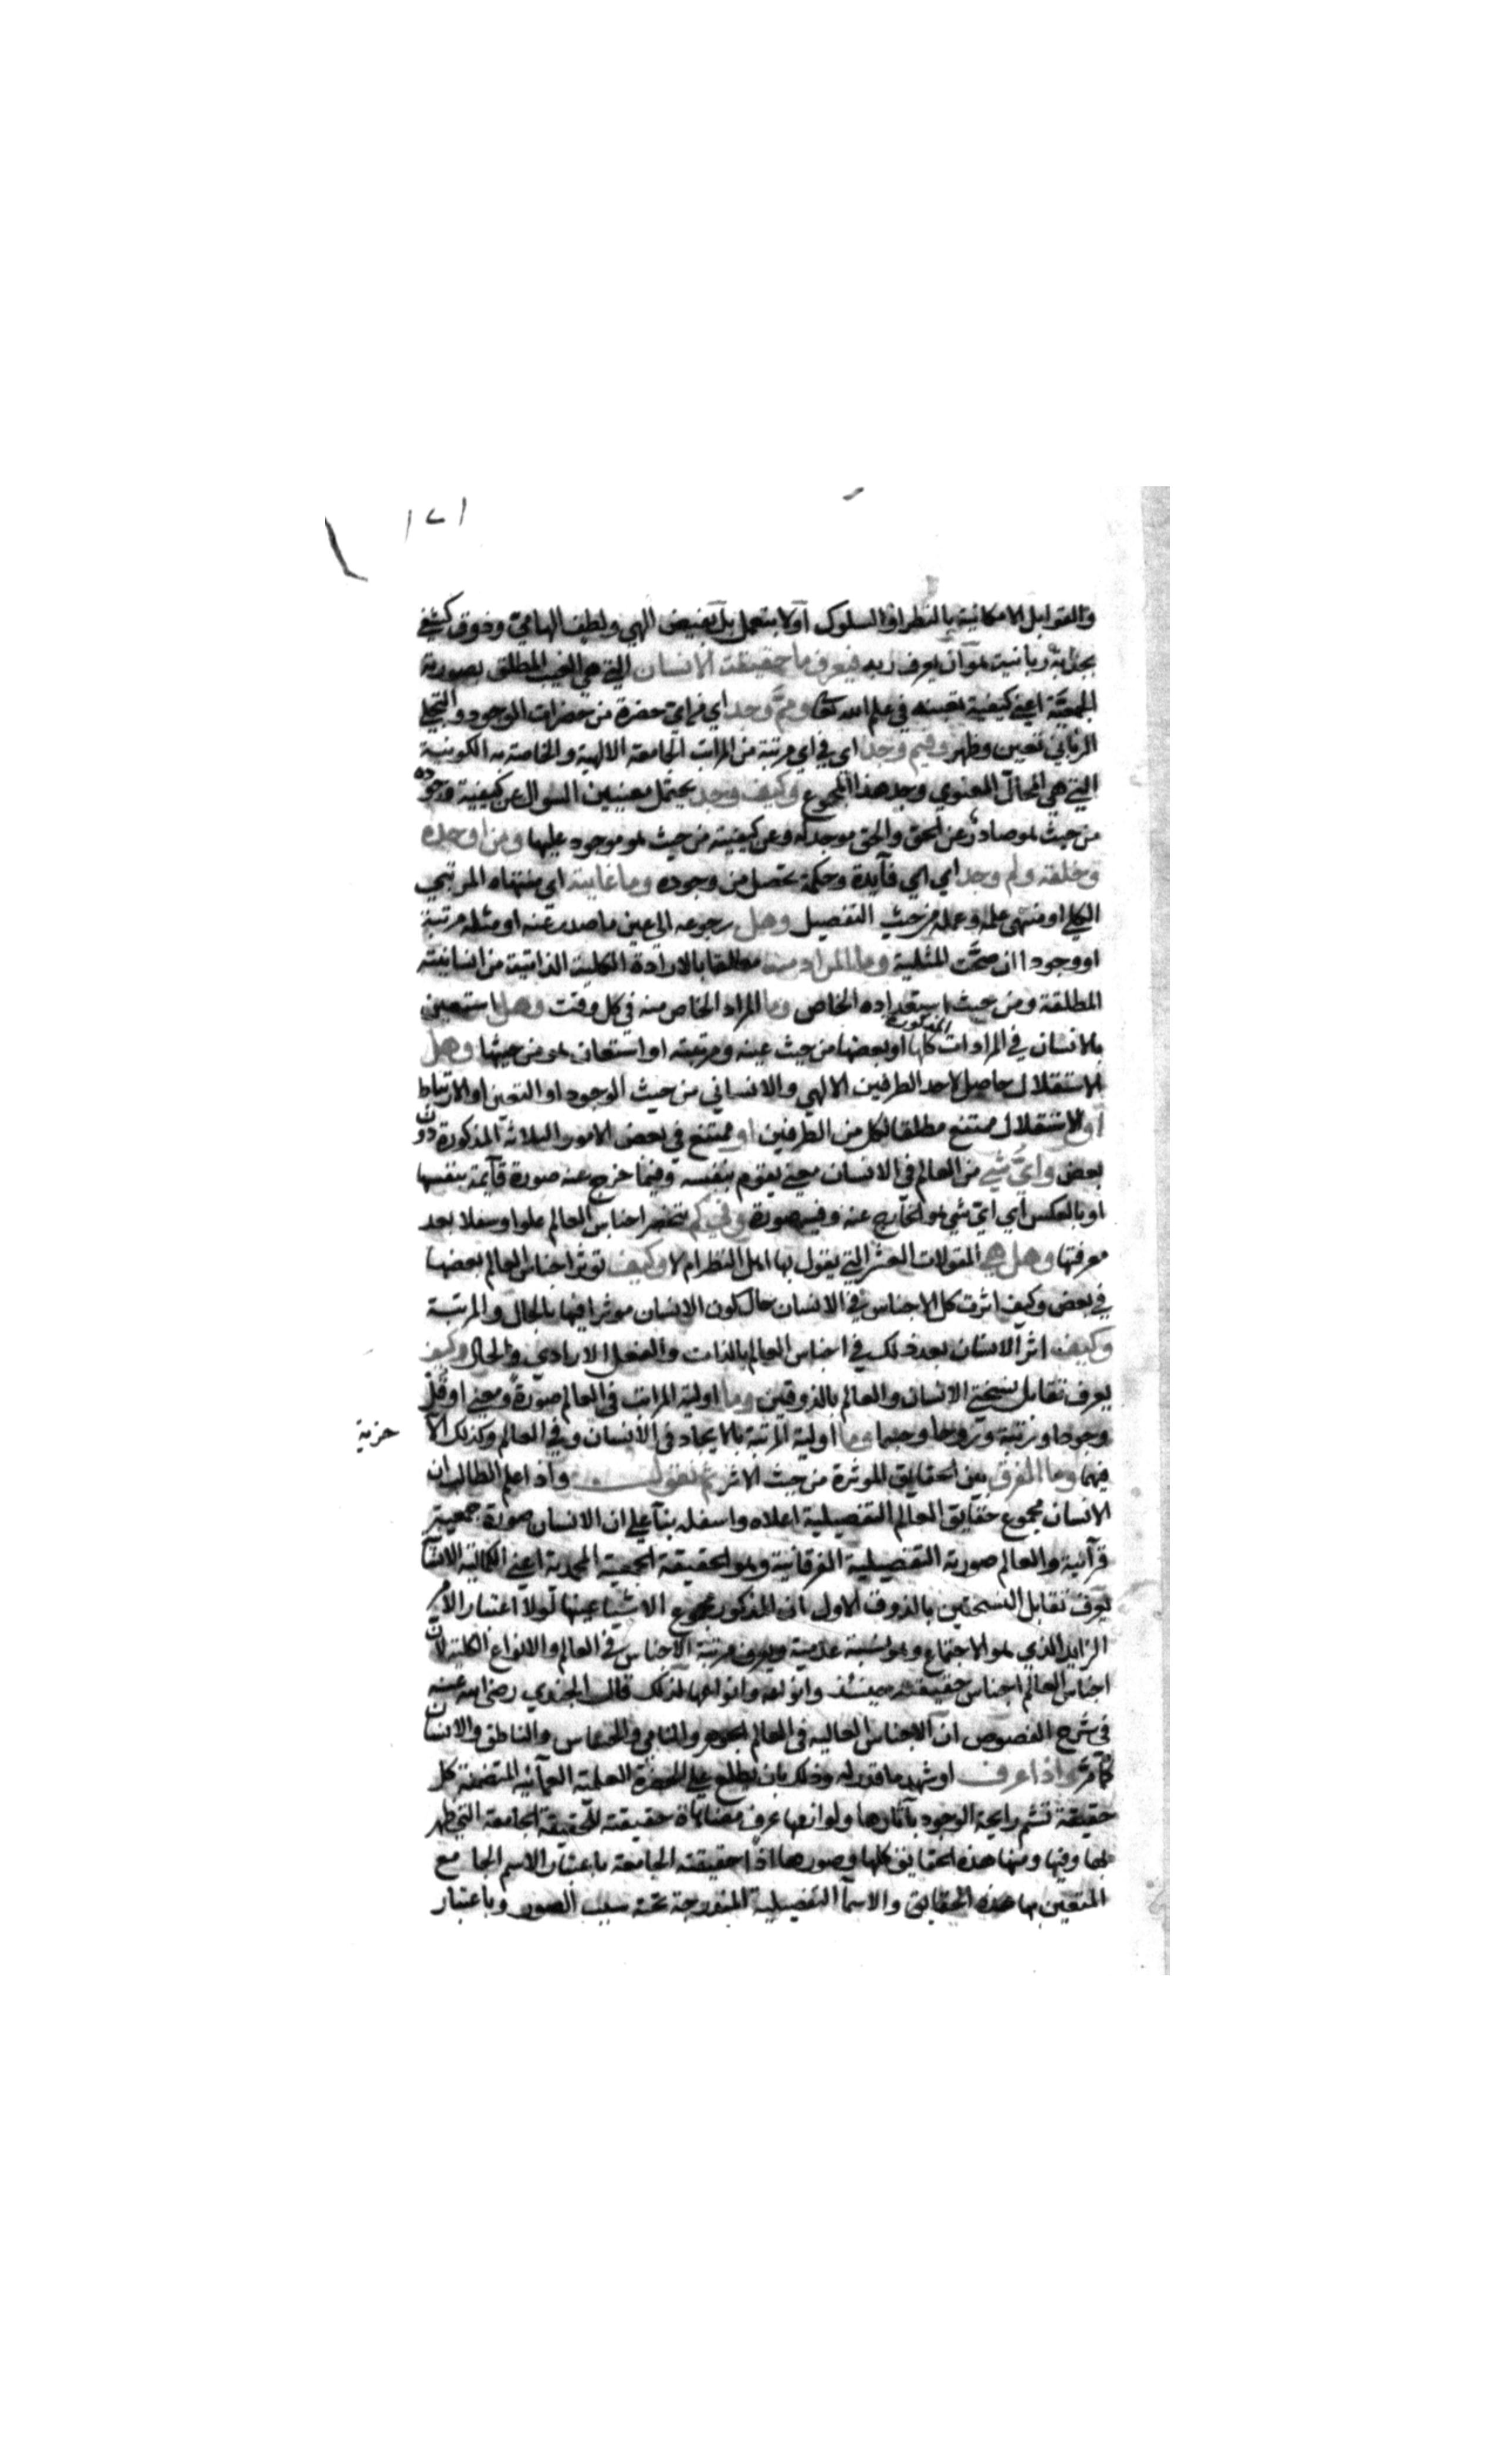 ١٢١
والقوابل الامكانية بالنظر او السلوك اولا بتعمل بل بفيض الهي ولطف الهامي وذوق كشفي
بجذبة ربانية هو ان يعرف ربه فيعرف ما حقيقة الانسان التي هي الغيب المطلق بصورته
الجمعية اعني كيفية تعينه في علم الله تعالى ومم وجد اي من اي حضرة من حضرات الوجود والتجلي
الرباني تعين وظهر وفيم وجد اي في اي مرتبة من المراتب الجامعة الالهية والخاصة به الكونية
التي هي المحال المعنوي وجد هذا المجموع وكيف وجد يحتمل معنيين السوال عن كيفية وجوده
من حيث هو صادر عن الحق والحق موجد له وعن كيفيته من حيث هو موجود عليها ومن اوجده
وخلقه ولم وجد اي لاي فآيدة وحكمة تحصل من وجوده وما غايته اي منتهاه المرتبي
الكلي او منتهى علمه وعمله من حيث التفصيل وهل رجوعه الى عين ما صدر عنه او مثله مرتبة
او وجودا ان صحت المثلية وما المراد منه مطلقا بالارادة الكلية الذاتية من انسانيته
المطلقة ومن حيث استعداده الخاص وما المراد الخاص منه في كل وقت وهل استعين
بالانسان في المرادات المذكورة كلها او بعضها من حيث عينه ومرتبته او استعان هو من حيثها وهل
الاستقلال حاصل لاحد الطرفين الالهي والانساني من حيث الوجود او التعين او الارتباط
او الاستقلال ممتنع مطلقا لكل من الطرفين او ممتنع في بعض الامور الثلاثة المذكورة دون
بعض واي شي من العالم في الانسان معنى يقوم بنفسه وفيما خرج عنه صورة قآيمة بنفسها
او بالعكس اي اي شي هو الخارج عنه وفيه صورة وفي كم تنحصر اجناس العالم علوا وسفلا بعد
معرفتها وهل هي المقولات العشر التي يقول بها اهل النظر ام لا وكيف توثر اجناس العالم بعضها
في بعض وكيف اثرت كل الاجناس في الانسان حال كون الانسان موثرا فيها بالحال والمرتبة
وكيف اثر الانسان بعد ذلك في اجناس العالم بالذات والفعل الارادي والحال وكيف
يعرف تقابل نسختي الانسان والعالم بالذوقين وما اولية المراتب في العالم صورة ومعنى او قل
وجودا ومرتبة وروحا وجسما وما اولية المرتبة بالايجاد في الانسان وفي العالم وكذلك الآ
خرية
فيهما وما الفرق بين الحقايق الموثرة من حيث الاثر ثم نقول واذا علم الطالب ان
الانسان مجموع حقايق العالم التفصيلية اعلاه واسفله بنآ على ان الانسان صورة جمعيته
قرآنية والعالم صورته التفصيلية الفرقانية وهو الحقيقة الجمعية المحمدية اعني الكمالية الانسا
يعرف تقابل النسختين بالذوق الاول ان المذكور مجموع الاشيا عينها لولا اعتبار الامر
الزايد الذي هو الاجتماع وهو نسبة عدمية ويعرف مرتبة الاجناس في العالم والانواع الكلية لان
اجناس العالم اجناس حقيقته حينئذ وانواعه وانواعها لذلك قال الجندي رضي الله عنه
في شرح الفصوص ان الاجناس العالية في العالم الجوهر والنامي والحساس والناطق والانسان
كما مر واذا عرف او شهد ما قدر له وذلك بان يطلع على الحضرة العلمية العمآئية المتضمنة كل
حقيقة تشم رايحة الوجود بآثارها ولوازمها عرف مضاهاة حقيقته للحقيقة الجامعة التي ظهر
بها وفيها ومنها هذه الحقايق كلها وصورها اذا حقيقته الجامعة باعتبار الاسم الجامع
المتعين بها هذه الحقايق والاسمآ التفصيلية المندرجة تحته سبب الصور وباعتبار